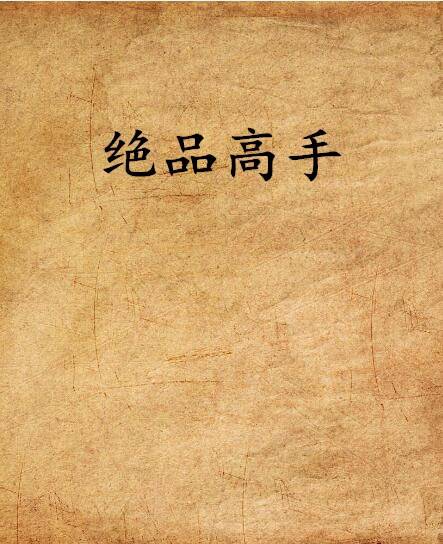 绝品高手